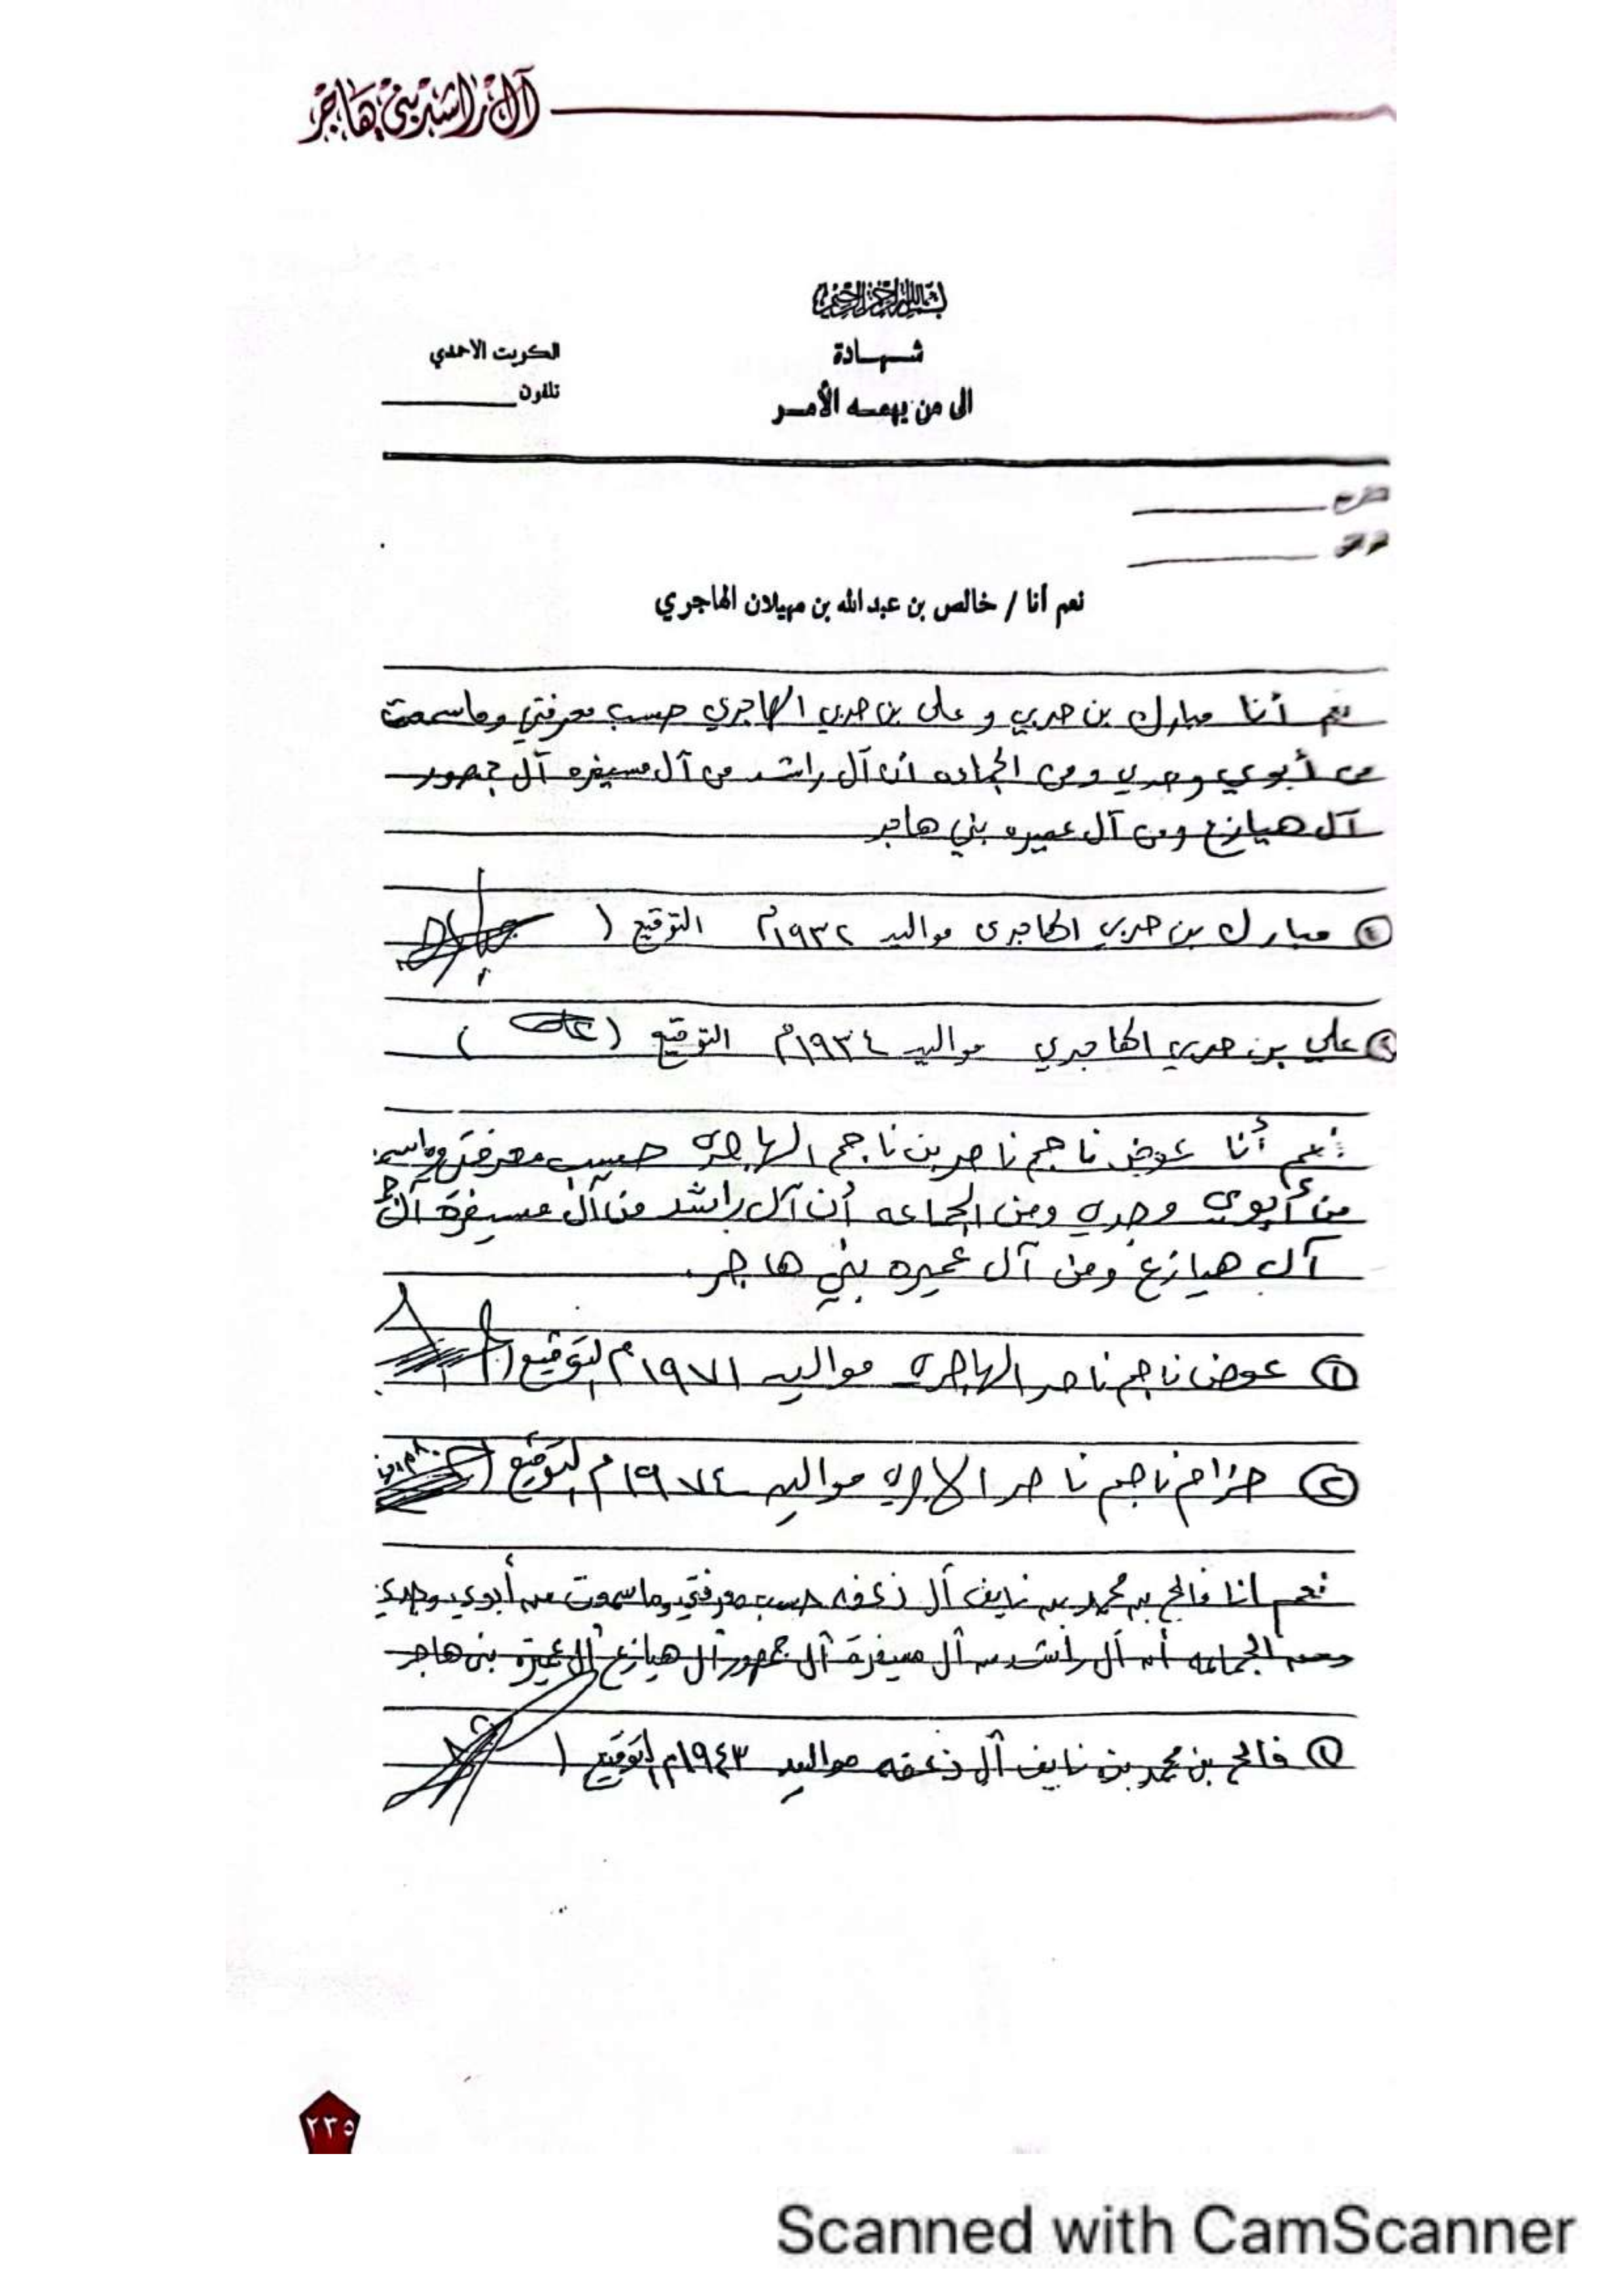 آل راشد بني هاجر
بسم الله الرحمن الرحيم
شهادة
الكويت الاحمدي
الى من يهمه الأمر
تلفون
نعم أنا / خالص بن عبدالله بن مهيلان الهاجري
نعم أنا مبارك بن حربي و علي بن حربي الهاجري حسب معرفتي وما سمعت
من أبوي وجدي ومن الجماعه أن آل راشد من آل مسيفره آل جمهور
آل هيازع ومن آل عميره بني هاجر
مبارك بن حربي الهاجري مواليد ١٩٣٢م التوقيع (
علي بن حربي الهاجري مواليد ١٩٣٤م التوقيع ( علي )
نعم أنا عوض ناجم ناصر بن ناجم الهاجري حسب معرفتي
من أبوي وجدي ومن الجماعه أن آل راشد من آل مسيفرة آل
آل هيازع ومن آل عميره بني هاجر.
① عوض ناجم ناصر الهاجري مواليد ١٩٧١م التوقيع (
② حزام ناجم ناصر الهاجري مواليد ١٩٧٤م التوقيع (
نعم انا فالح بن محمد بن نايف آل ذعفه حسب معرفتي وما سمعت من أبوي وجدي
ومن الجماعه أن آل راشد من آل مسيفرة آل جمهور آل هيازع آل عميرة بني هاجر
① فالح بن محمد بن نايف آل ذعفه مواليد ١٩٤٣م التوقيع (
٢٣٥
Scanned with CamScanner